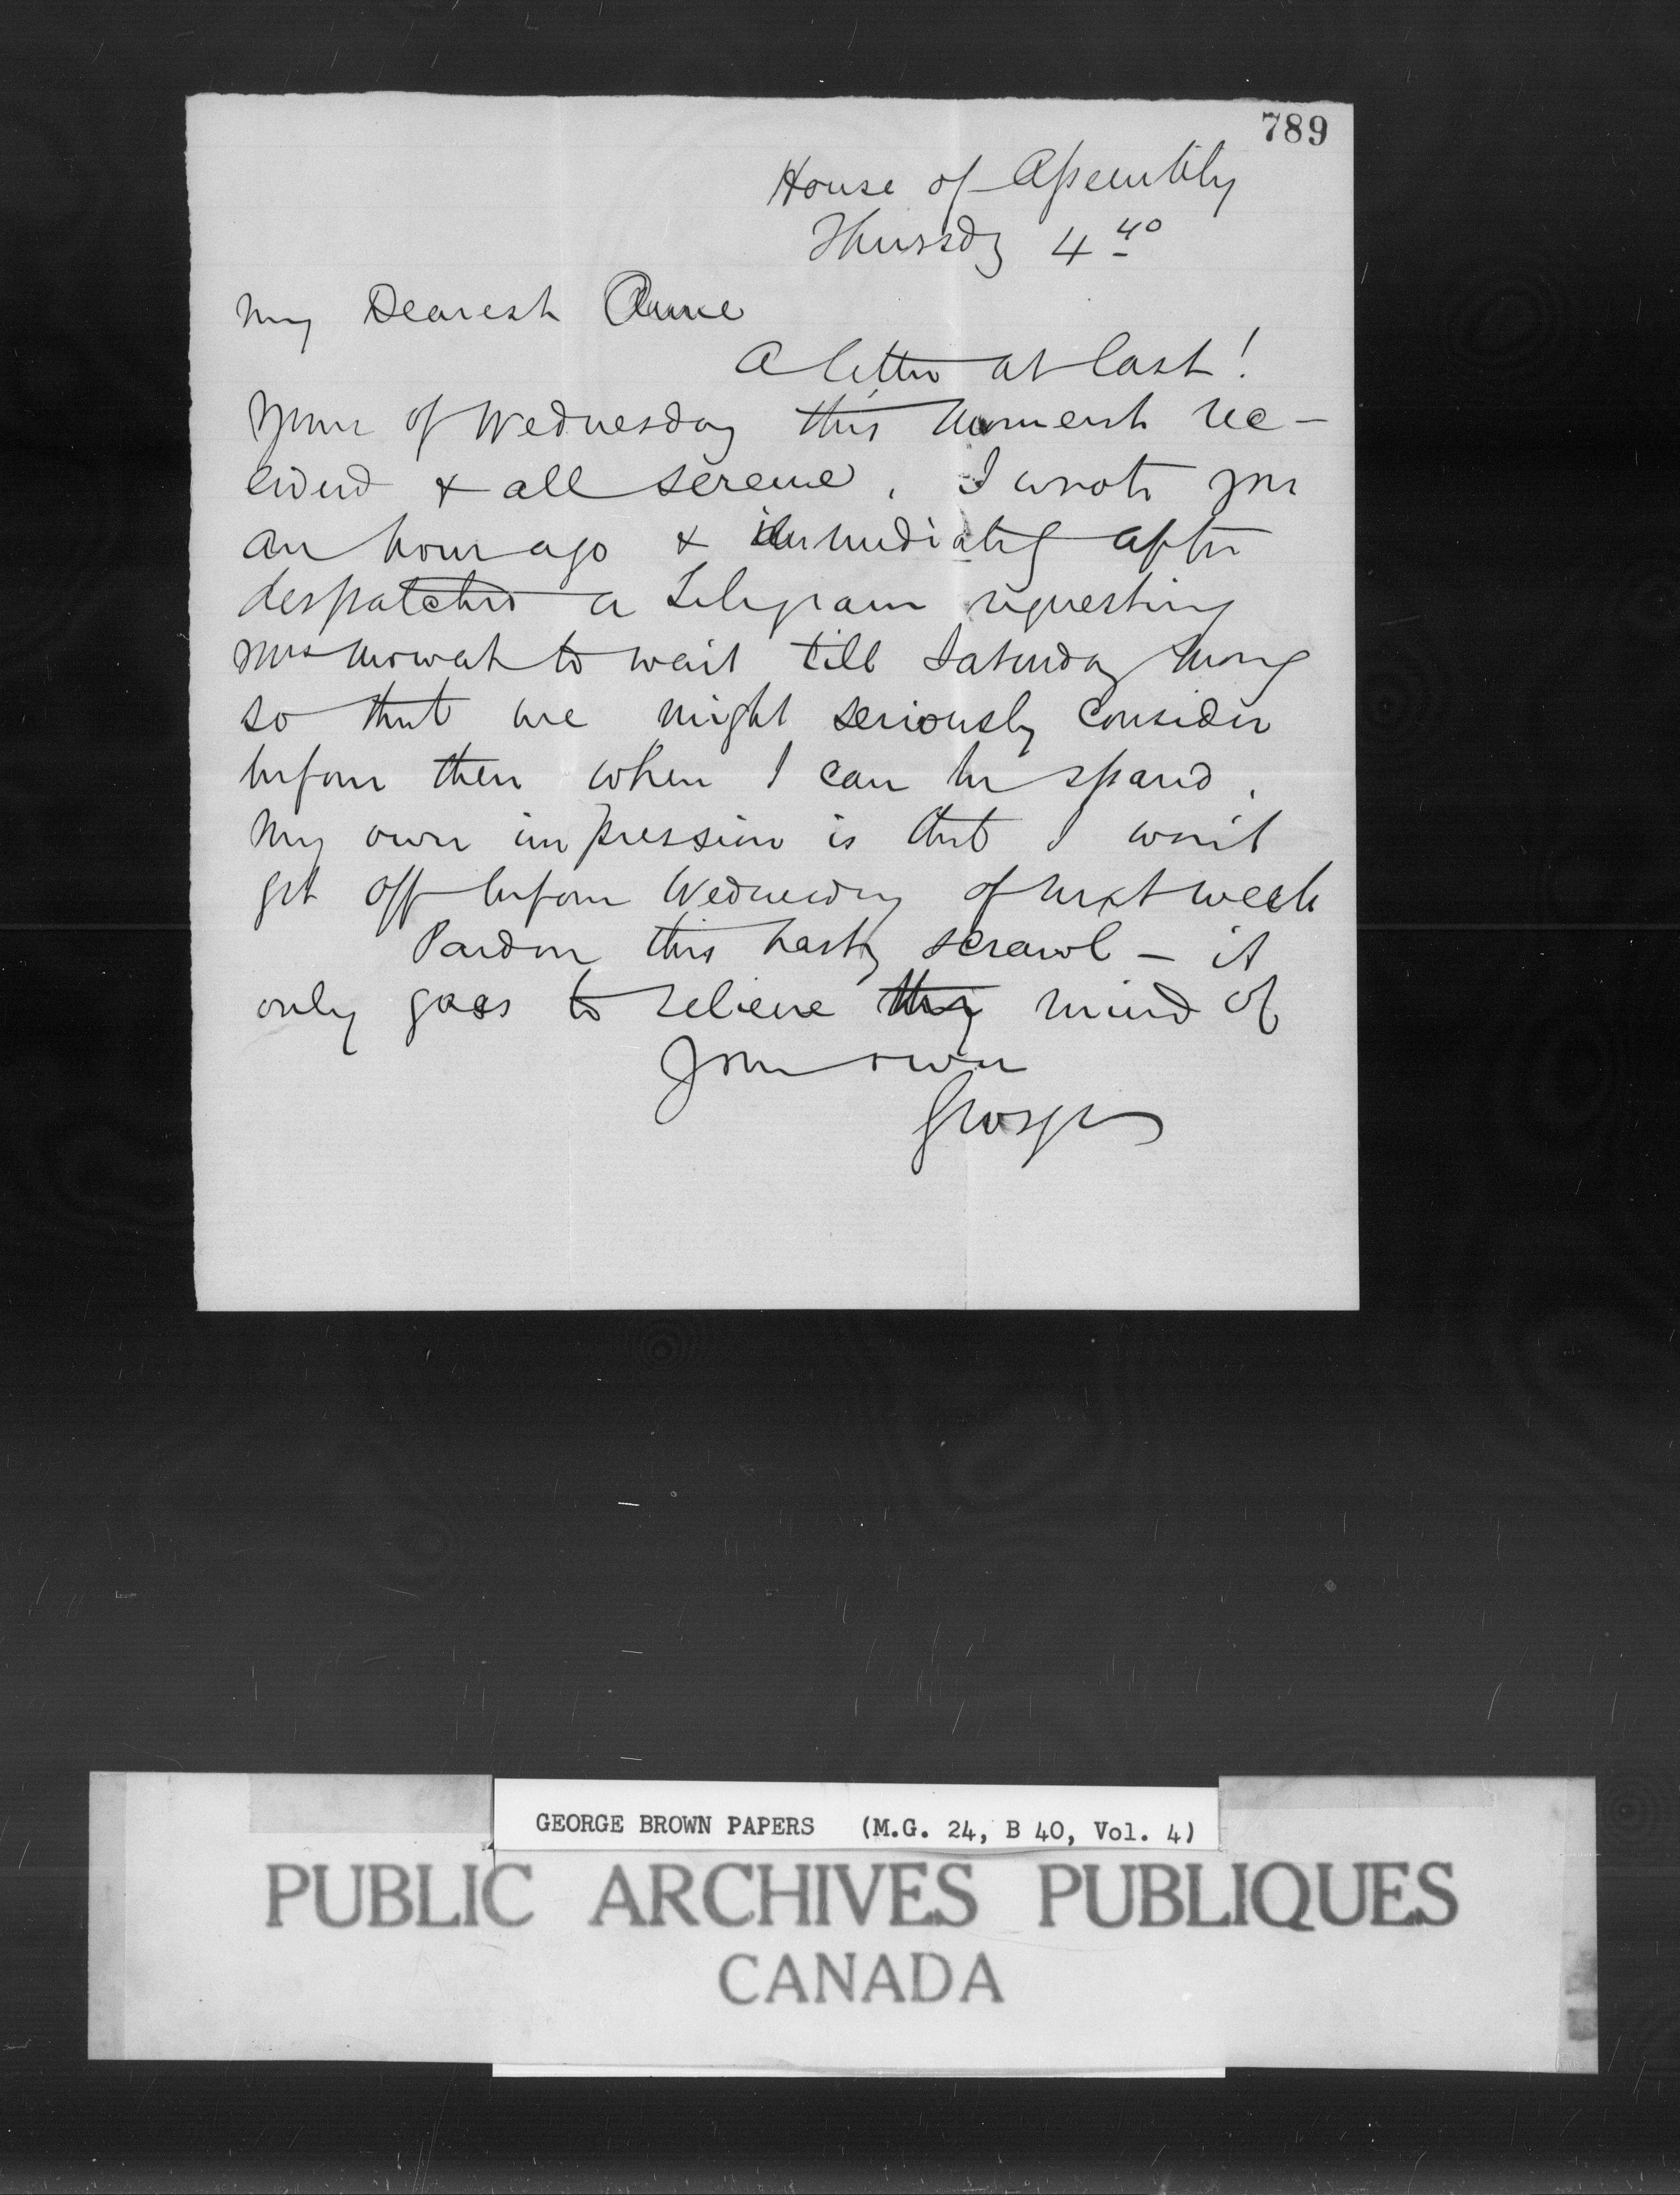 789
House of Assembly
Thursdy 4 40
My Dearest Anne
A letter at last!
Yours of Wednesday this moment re-
ceived & all serene. I wrote you
an hour ago & immediately after
despatched a Telegram requesting
Mrs Mowat to wait till Saturday Morng
so that we might seriously consider
before then when I can be spared.
My own impression is that I won't
get off before Wednesday of next week
Pardon this hasty scrawl - it
only goes to relieve the mind of
Your own
George
GEORGE BROWN PAPERS (M.G. 24, B 40, Vol. 4)
PUBLIC ARCHIVES PUBLIQUES
CANADA